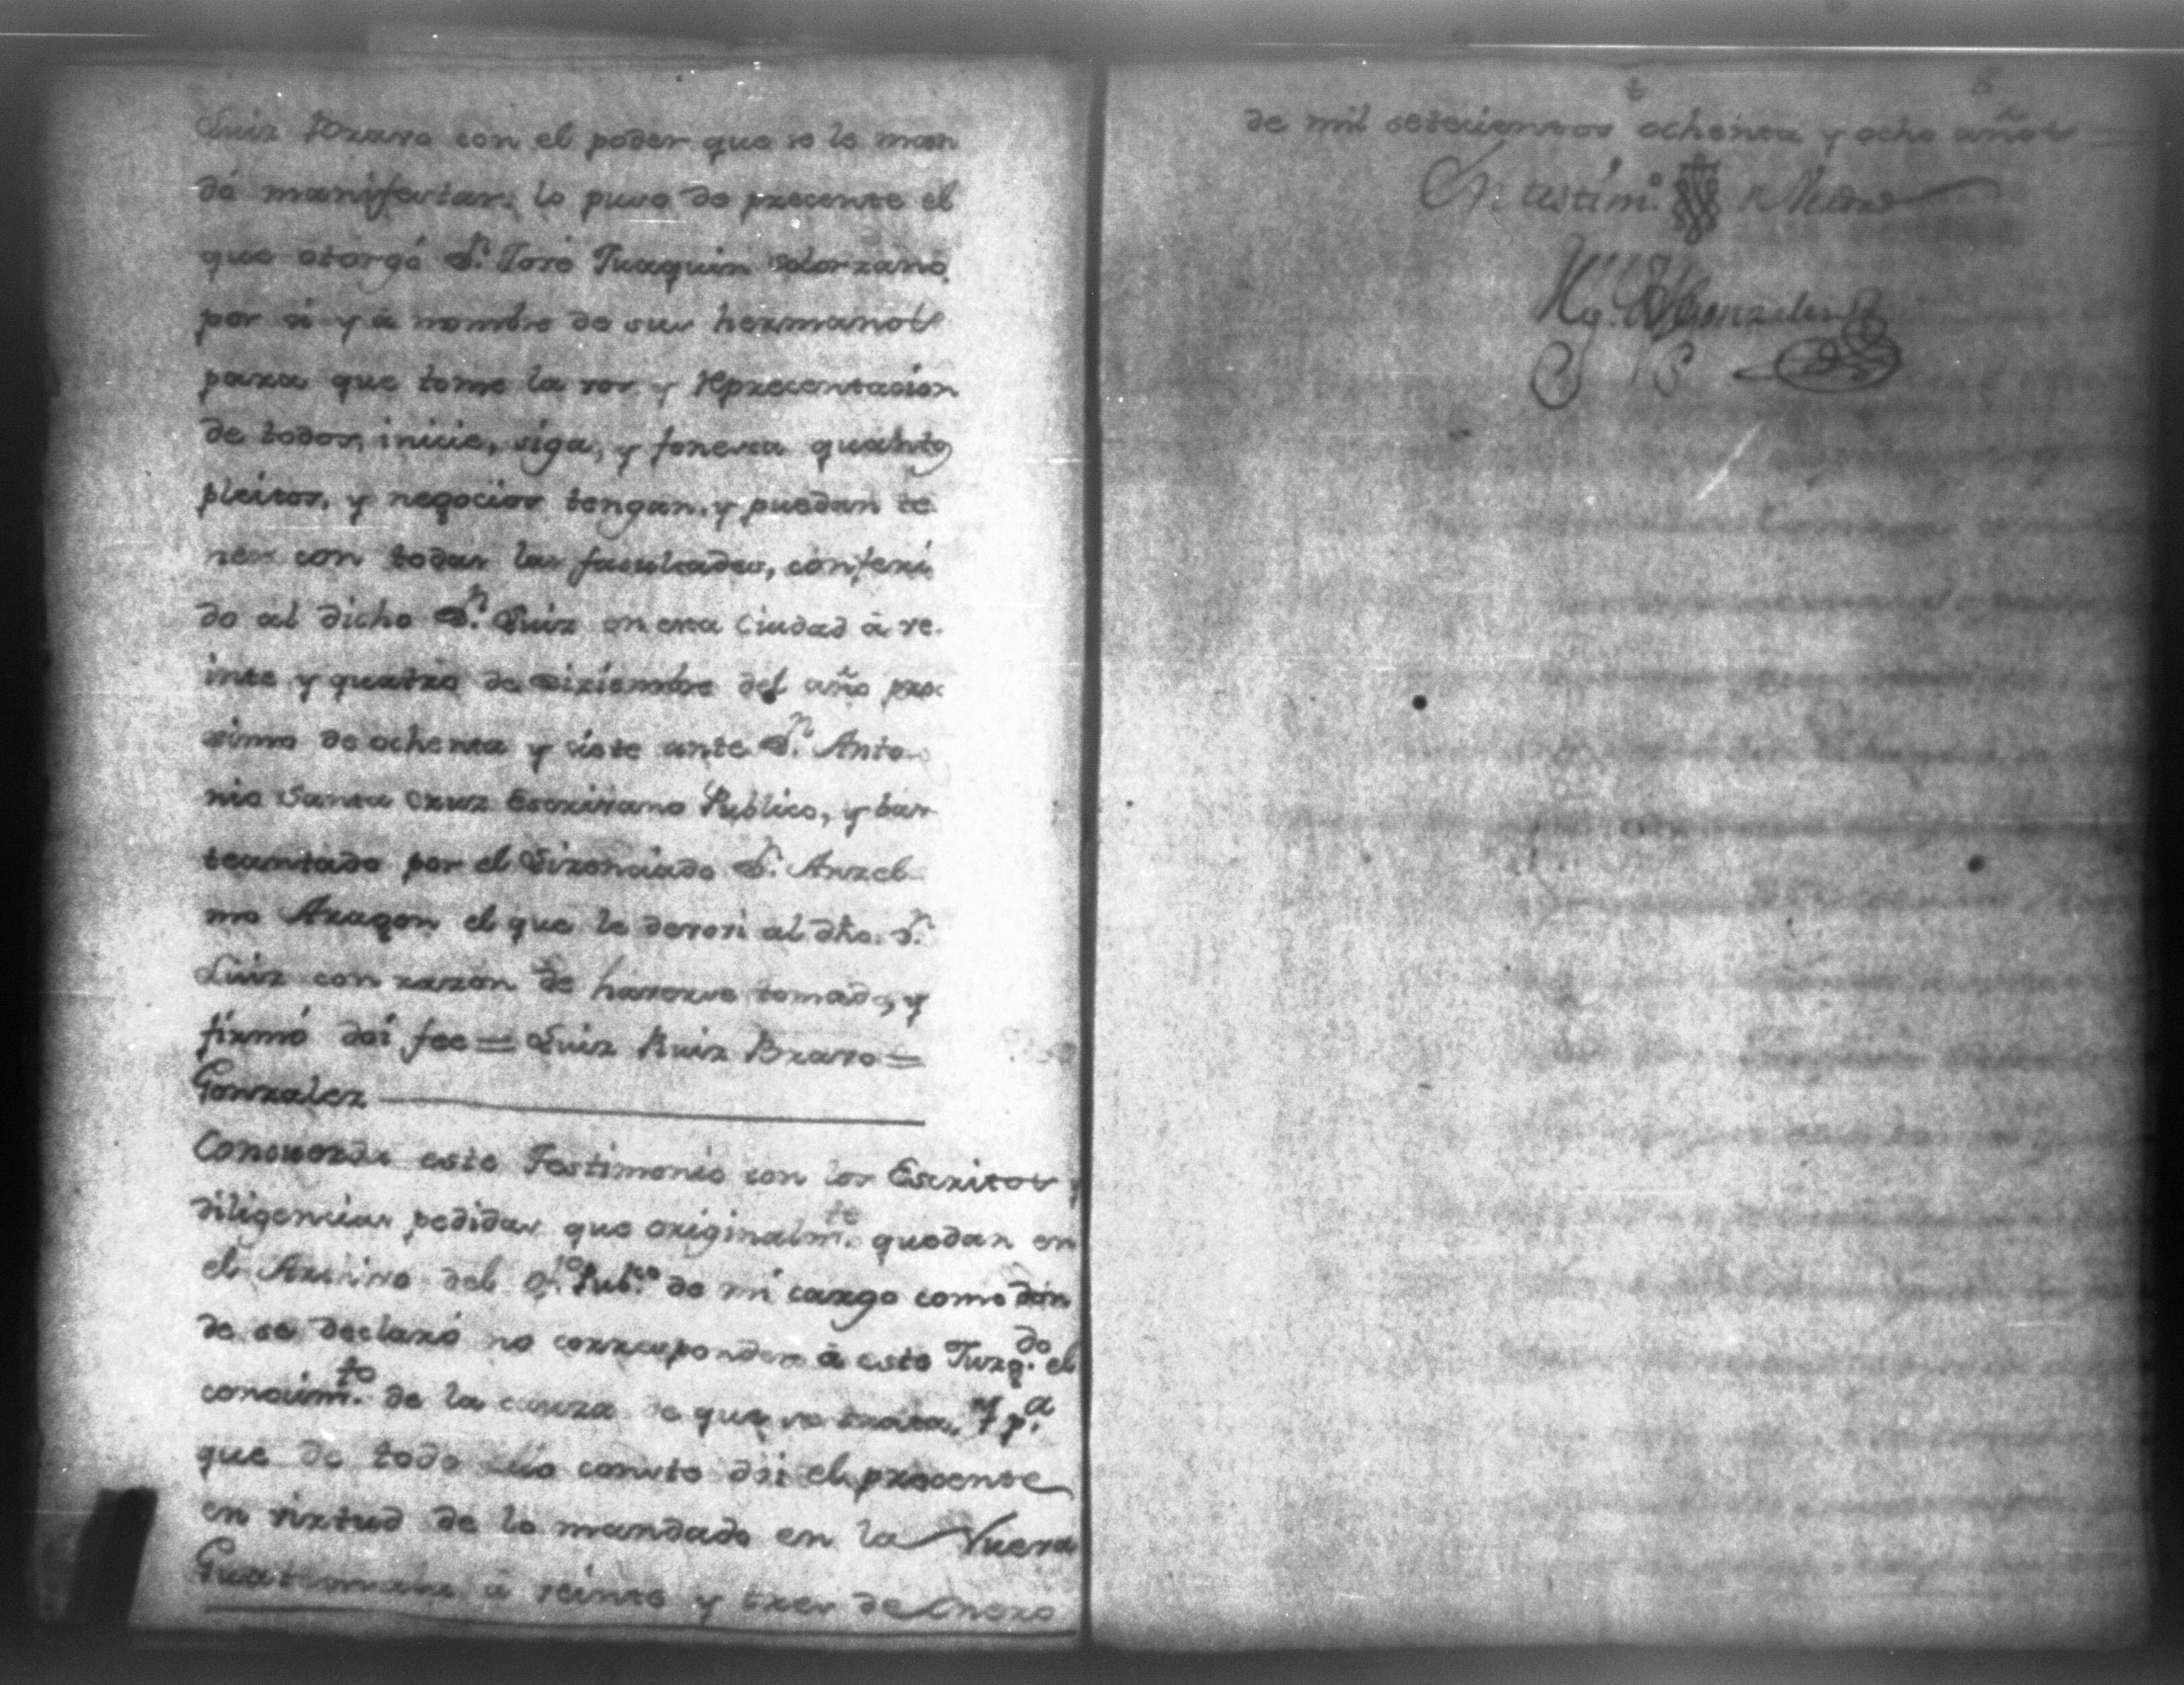 Luiz Bravo con el poder que se le man
dó manifestar, lo puso de presente el
que otorgó Dn. José Juaquin Solorzano,
por sí y á nombre de sus hermanos
para que tome la voz y representacion
de todos, inicie, siga, y fenesca quanto
pleitos, y negocios tengan, y puedan te
ner con todas las facultades, conferi
do al dicho Dn. Luiz en esta Ciudad á ve
inte y quatro de Diziembre del año pro
simo de ochenta y siete ante Dn. Anto
nio Santa Cruz Escrivano Publico, y bas
teantado por el Lizenciado Dn. Anzel
mo Aragon el que le devovi al dho. Dn.
Luiz con razon de haverse tomado, y
firmó doi fee = Luiz Ruiz Bravo =
Gonzalez
Concuerda este Testimonio con los Escritos y
diligencias pedidas que originalmte. quedan en
el Archivo del Ofo. Pubco. de mi cargo como don
de se declaró no corresponder á este Juzgdo. el
conocimto. de la cauza de que se trata, Y pa.
que de todo ello conste doi el presente
en virtud de lo mandado en la Nueva
Guatemala á veinte y tres de Enero
de mil setecientos ochenta y ocho años =
testimo. Verdad
Gonzalez